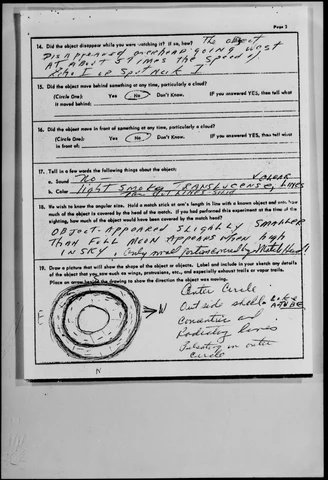 Page 3
14. Did the object disappear while you were watching it? If so, how? The object
Disappeared overhead going west
AT ABOUT 5 TIMES the Speed of
Echo I or Sputnick I
15. Did the object move behind something at any time, particularly a cloud?
(Circle One): Yes No Don't Know. IF you answered YES, then tell what
it moved behind:
16. Did the object move in front of something at any time, particularly a cloud?
(Circle One): Yes No Don't Know. IF you answered YES, then tell what
in front of:
17. Tell in a few words the following things about the object:
a. Sound No
b. Color light smokey TRANSLUCENSE, CLEAR LINES
18. We wish to know the angular size. Hold a match stick at arm's length in line with a known object and note how
much of the object is covered by the head of the match. If you had performed this experiment at the time of the
sighting, how much of the object would have been covered by the match head?
OBJECT APPEARED SLIGHLY SMALLER
THAN FULL MOON APPEARS WHEN high
IN SKY, Only small portion covered by Match Head!
19. Draw a picture that will show the shape of the object or objects. Label and include in your sketch any details
of the object that you saw such as wings, protrusions, etc., and especially exhaust trails or vapor trails.
Place an arrow beside the drawing to show the direction the object was moving.
Center Circle
E
Outside shell
Concentric and
Radiating lines
Pulsating in outer
circle